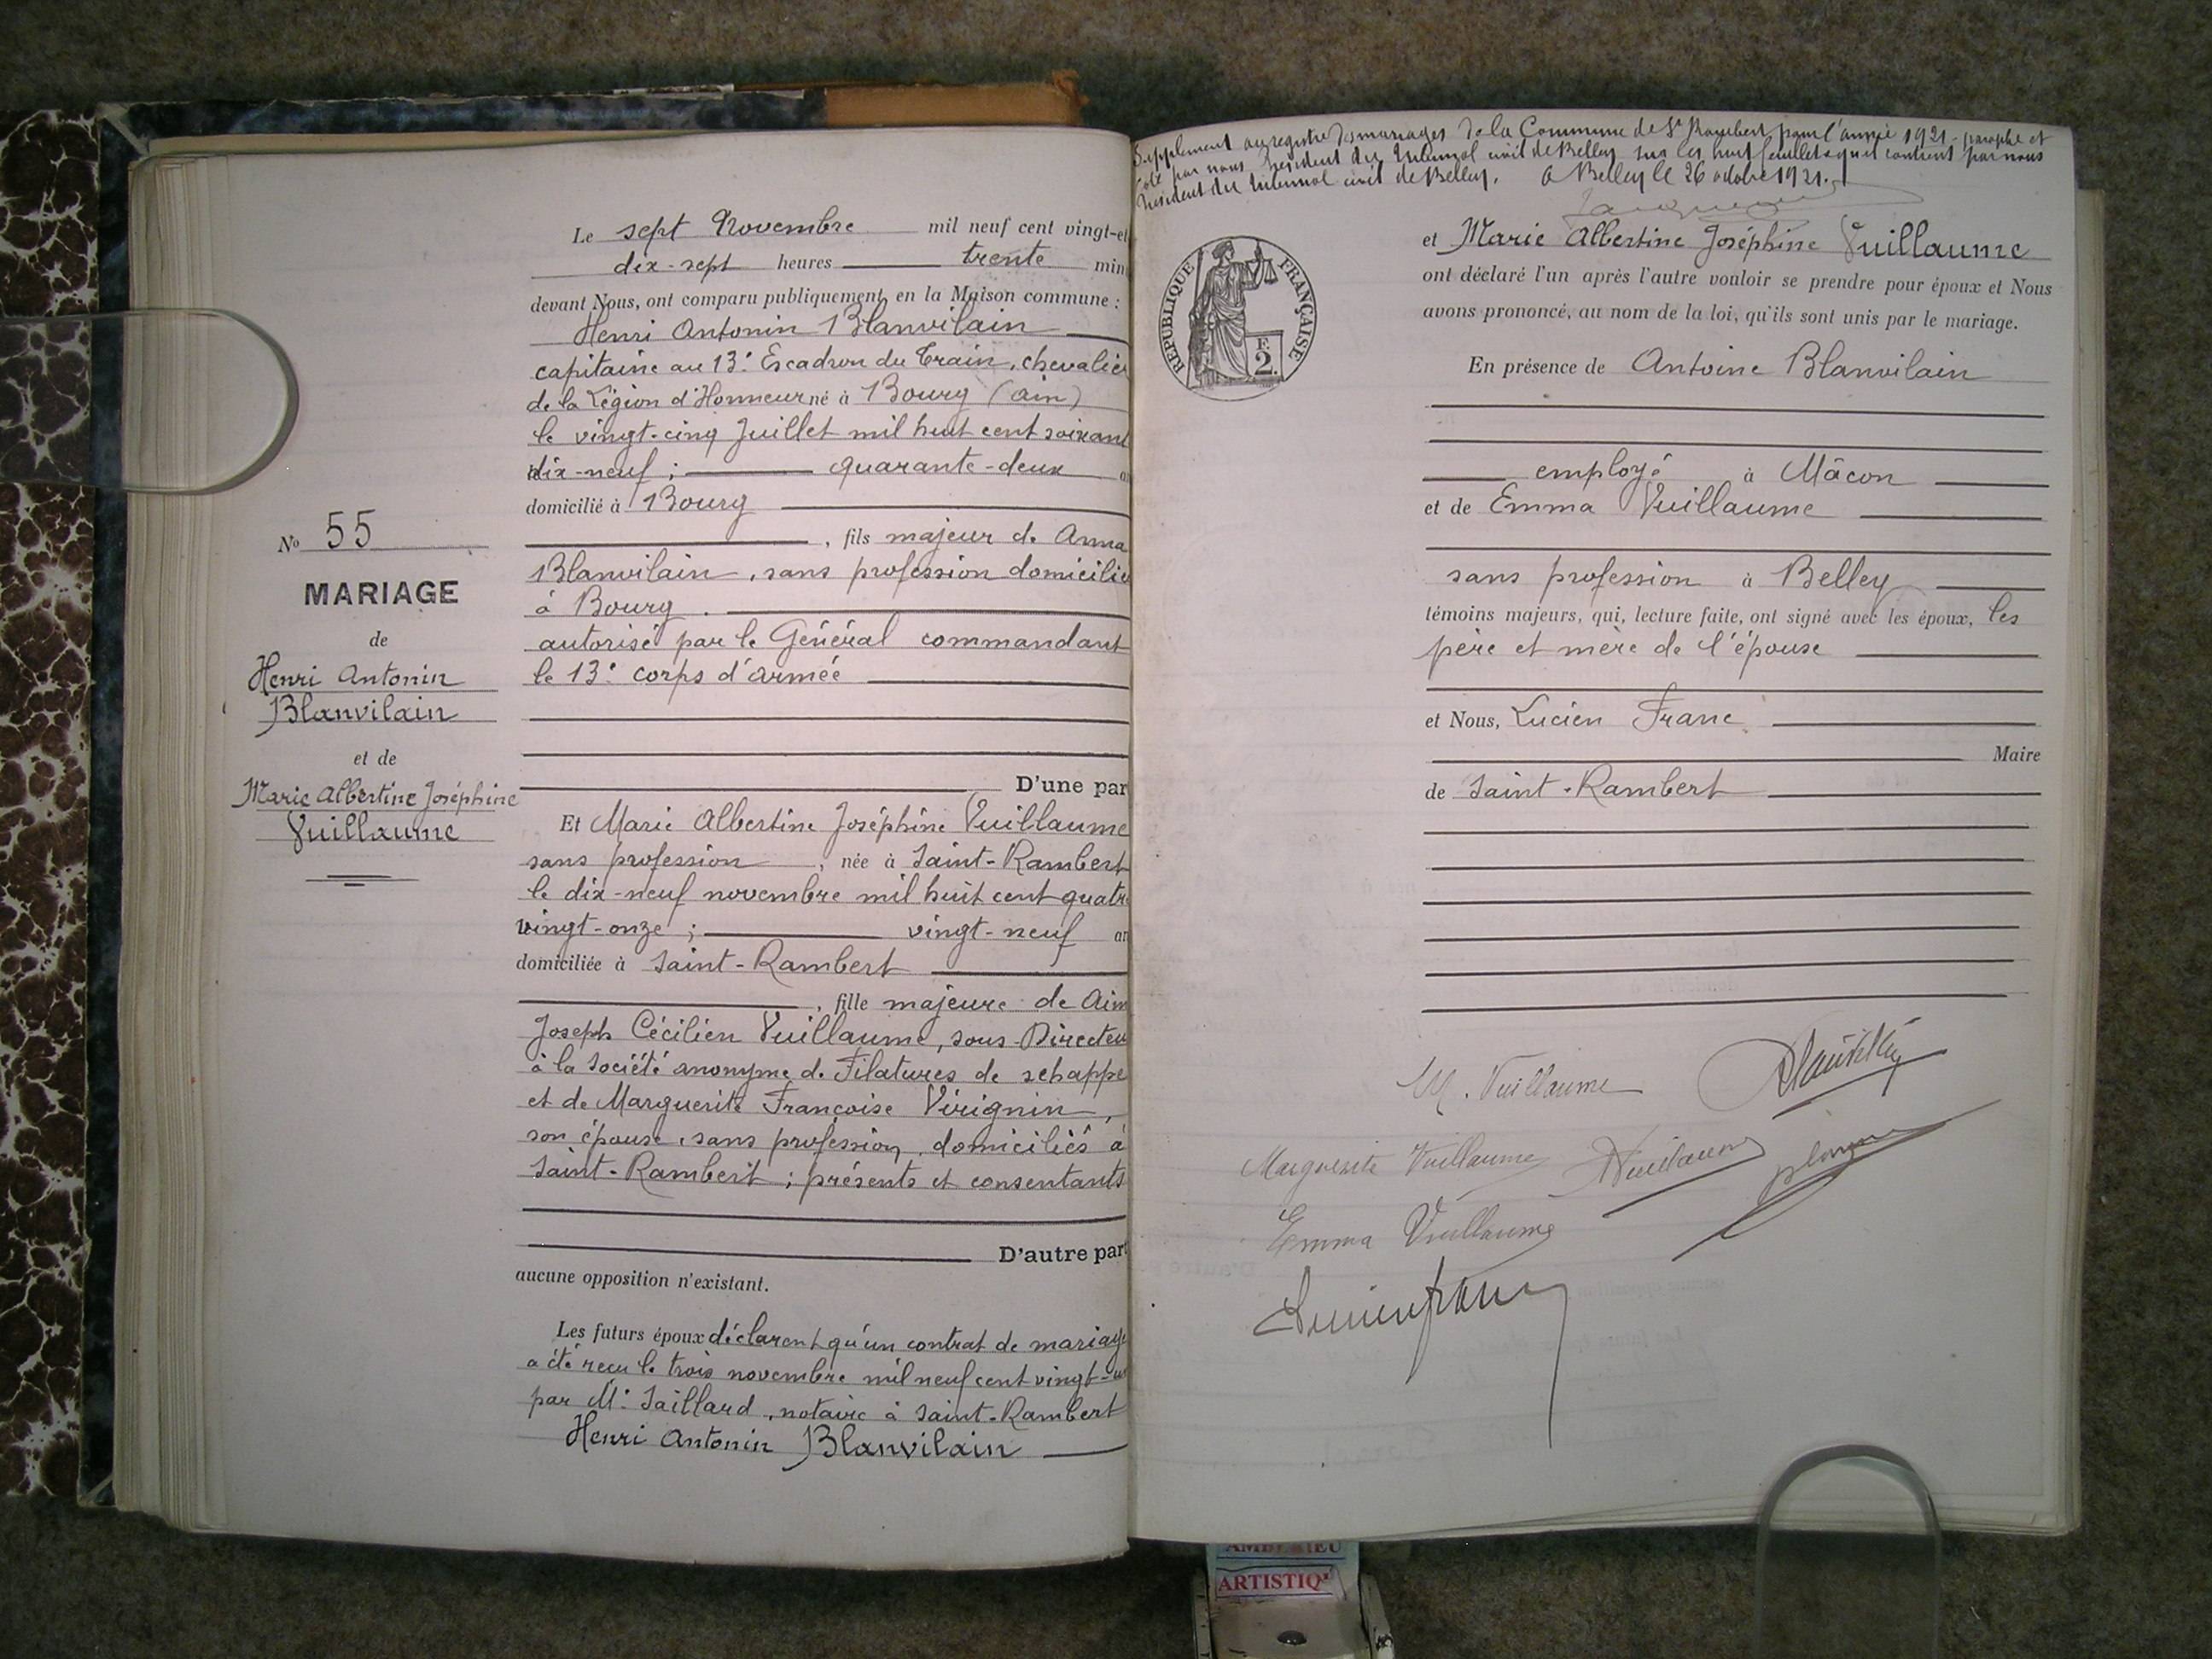 Le sept Novembre mil neuf cent vingt-et
dix-sept heures trente min
devant Nous, ont comparu publiquement en la Maison commune :
Henri Antonin Blanvilain
capitaine au 13e Escadron du Train, chevalier
de la Légion d'Honneur né à Bourg (Ain)
le vingt-cinq Juillet mil huit cent soixant
dix-neuf ; quarante-deux an
domicilié à Bourg
, fils majeur de Anna
Blanvilain, sans profession domicilié
à Bourg.
autorisé par le Général commandant
le 13e corps d'armée
D'une par
Et Marie Albertine Joséphine Vuillaume
sans profession, née à Saint-Rambert
le dix-neuf novembre mil huit cent quatr
vingt-onze ; vingt-neuf an
domiciliée à Saint-Rambert
, fille majeure de Aim
Joseph Cécilien Vuillaume, sous-Directeu
à la Société anonyme de Filatures de schappe
et de Marguerite Françoise Virignin,
son épouse, sans profession, domiciliés à
Saint-Rambert ; présents et consentants
D'autre part
aucune opposition n'existant.
Les futurs époux déclarent qu'un contrat de mariage
a été reçu le trois novembre mil neuf cent vingt-un
par Me Saillard, notaire à Saint-Rambert
Henri Antonin Blanvilain
No 55
MARIAGE
de
Henri Antonin
Blanvilain
et de
Marie Albertine Joséphine
Vuillaume
Supplément au registre des mariages de la Commune de St Rambert pour l'année 1921 - paraphé et
coté par nous Président du tribunal civil de Belley sur les huit feuillets qu'il contient par nous
Président du tribunal civil de Belley. A Belley le 26 octobre 1921.
RÉPUBLIQUE FRANÇAISE
F.
2.
et Marie Albertine Joséphine Vuillaume
ont déclaré l'un après l'autre vouloir se prendre pour époux et Nous
avons prononcé, au nom de la loi, qu'ils sont unis par le mariage.
En présence de Antoine Blanvilain
employé à Mâcon
et de Emma Vuillaume
sans profession à Belley
témoins majeurs, qui, lecture faite, ont signé avec les époux, les
père et mère de l'épouse
et Nous, Lucien Franc
Maire
de Saint-Rambert
M. Vuillaume
Blanvilain
Marguerite Vuillaume
Vuillaume
Emma Vuillaume
Lucien Franc
AMBÉRIEU
ARTISTIQ